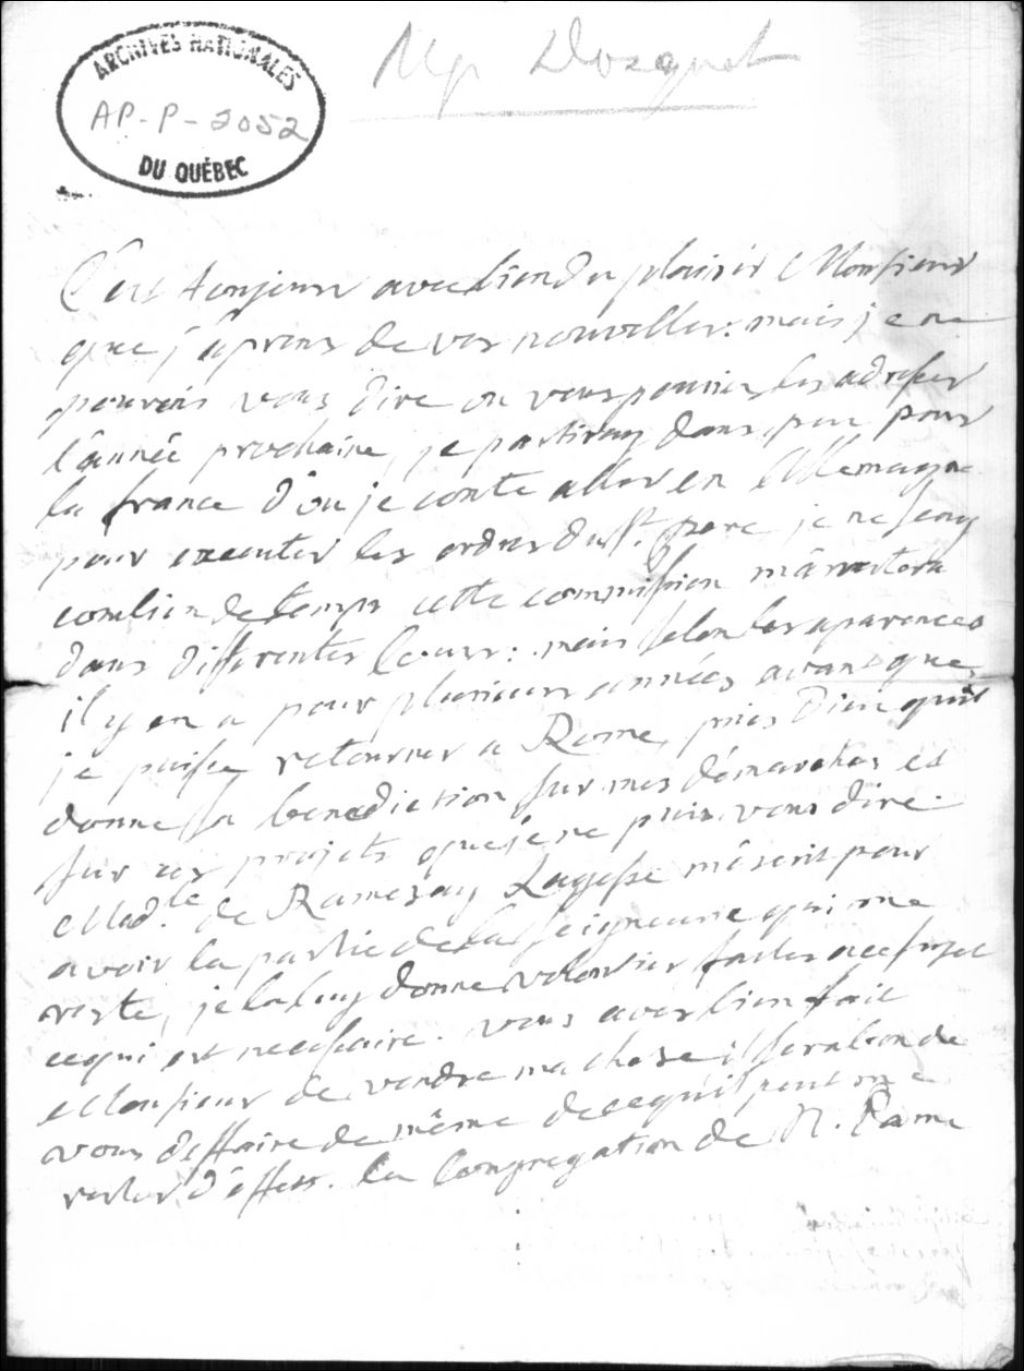 Mgr Dosquet
ARCHIVES NATIONALES
AP-P-2052
DU QUÉBEC
C'est toujours avec bien du plaisir Monsieur
que j'aprens de vos nouvelles: mais je ne
pourois vous dire ou vous pouriez les adresser
l'année prochaine, je partiray dans peu pour
la france d'ou je conte aller en Allemagne
pour executer les ordres du St. Pere je ne sçay
combien de temps cette commission m'arretera
dans differentes Cours: mais selon les aparences
il y en a pour plusieurs années avant que
je puisse retourner a Rome, priés Dieu qu'il
donne sa benediction sur mes démarches et
sur ces projets que je ne puis vous dire.
Madle. de Ramezay m'ecrit pour
avoir la partie de la seigneurie qui me
reste, je la luy donne volontier faites a ce sujet
ce qui est necessaire. vous aves bien fait
Monsieur de vendre ma chaise il sera bon de
vous deffaire de même de ce qu'il peut me
rester d'effets. la Congregation de N. Dame